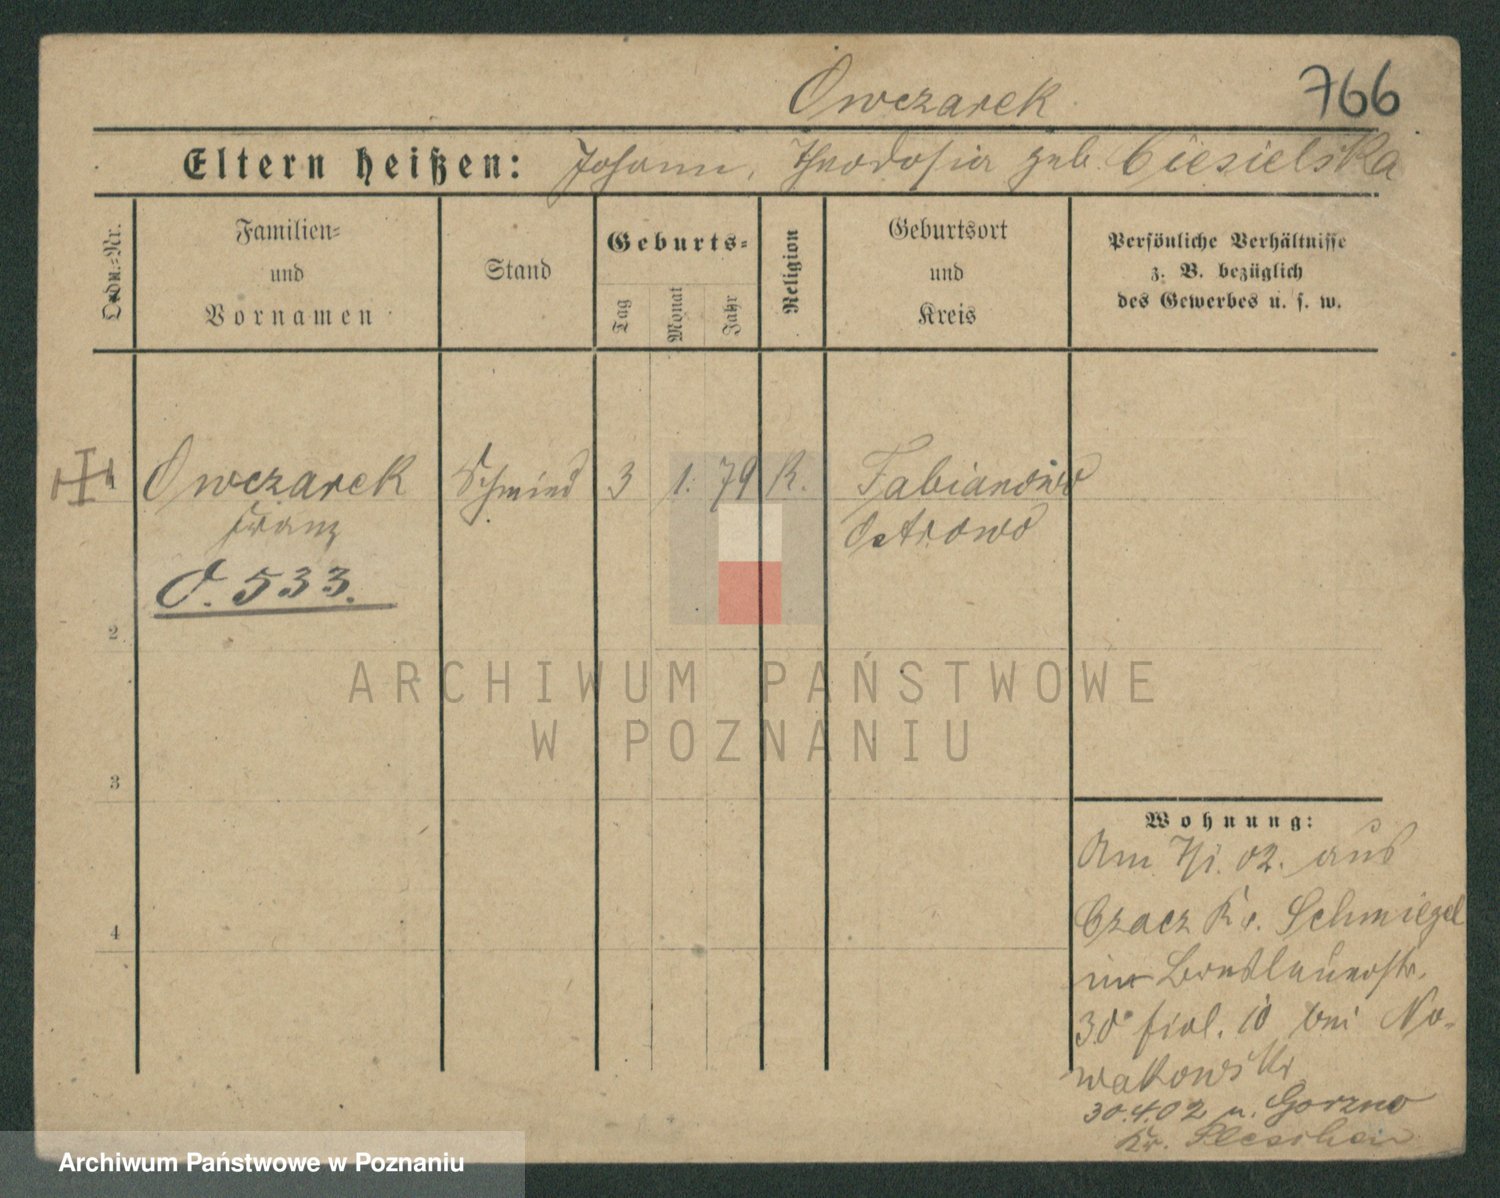 Owczarek 766
Eltern heißen: Johann, Theodosia geb. Ciesielska
Ordn.-Nr.
Familien-
und
Vornamen
Stand
Geburts-
Tag
Monat
Jahr
Religion
Geburtsort
und
Kreis
Persönliche Verhältnisse
z. B. bezüglich
des Gewerbes u. s. w.
1 Owczarek Schmied 3 1. 79 K. Fabianowo
Franz Ostrowo
O. 533.
2
ARCHIWUM PAŃSTWOWE
W POZNANIU
3
Wohnung:
Am 7/1. 02. aus
Czacz Kr. Schmiegel
in Breslauerstr.
30 bei No-
wakowski
4
30.4.02 n. Gorzno
Kr. Pleschen
Archiwum Państwowe w Poznaniu